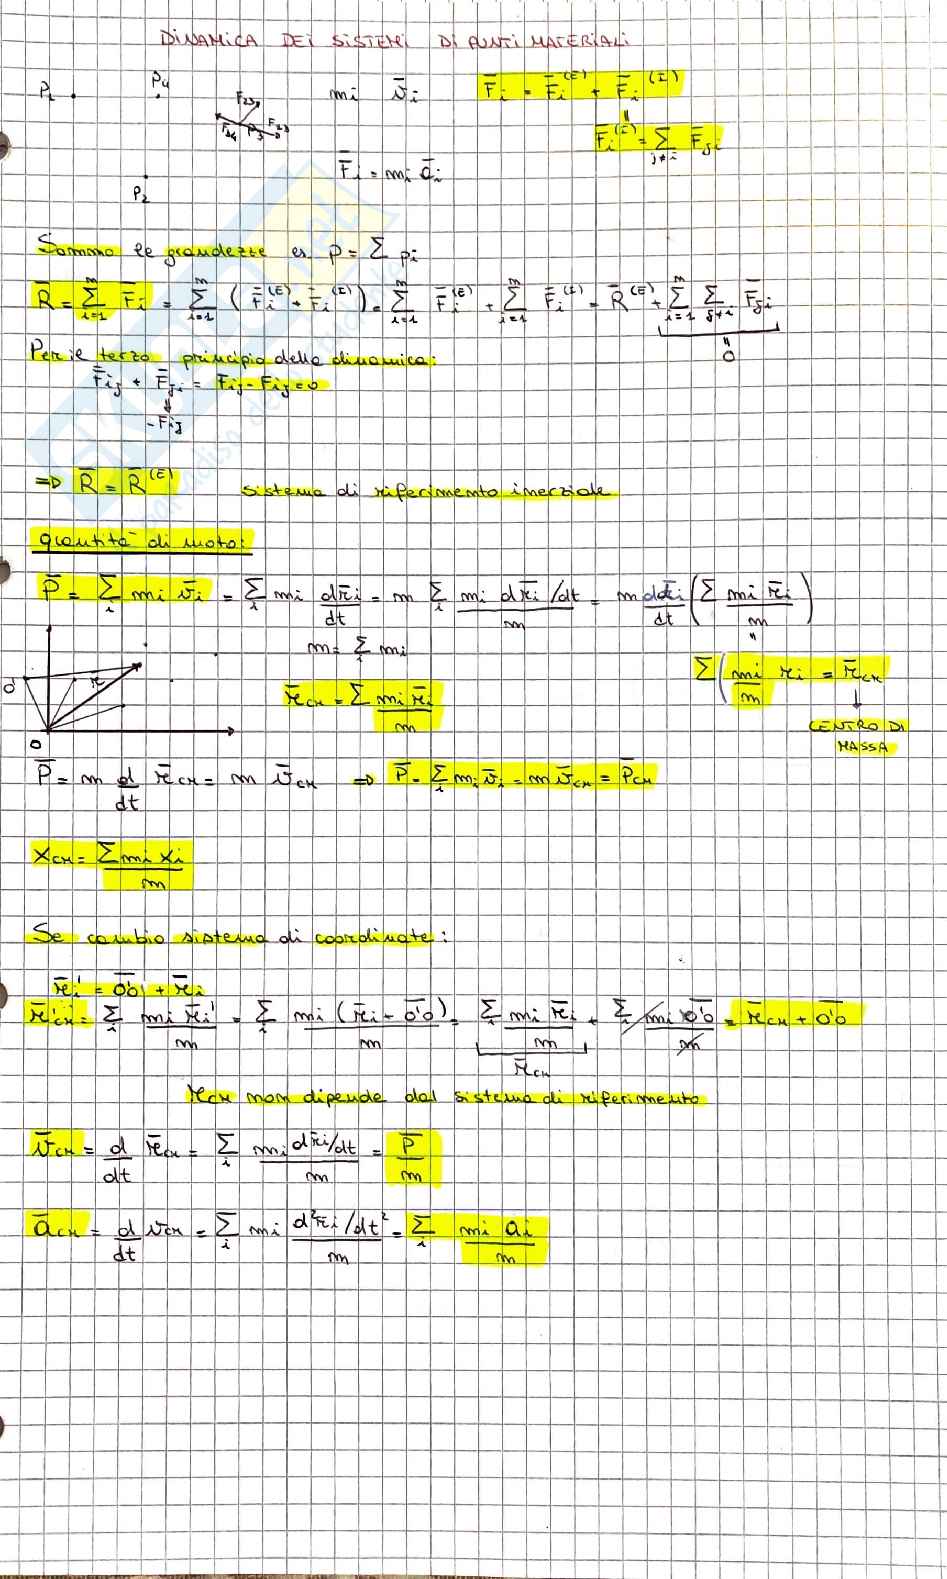 DINAMICA DEI SISTEMI DI PUNTI MATERIALI
P₁ P₄ F₂₃ F₃₄ P₃ F₁₃ P₂
mi v̄i F̄i = F̄i⁽ᴱ⁾ + F̄i⁽ᴵ⁾
F̄i⁽ᴵ⁾ = Σ j≠i F̄ji
F̄i = mi āi
Sommo le grandezze es. P = Σ pi
R̄ = Σ i=1 m F̄i = Σ i=1 m (F̄i⁽ᴱ⁾ + F̄i⁽ᴵ⁾) = Σ i=1 m F̄i⁽ᴱ⁾ + Σ i=1 m F̄i⁽ᴵ⁾ = R̄⁽ᴱ⁾ + Σ i=1 m Σ j≠i F̄ji
" 0
Per il terzo principio della dinamica:
F̄ij + F̄ji = Fij - Fij = 0
↓
-Fij
=> R̄ = R̄⁽ᴱ⁾ sistema di riferimento inerziale
quantità di moto:
P̄ = Σ i mi v̄i = Σ i mi dr̄i/dt = m Σ i mi dr̄i/dt / m = m d/dt (Σ mi r̄i / m)
m = Σ i mi
Σ (mi/m ri = r̄cm
↓
CENTRO DI MASSA
r̄cm = Σ mi r̄i / m
O' r O
P̄ = m d/dt r̄cm = m v̄cm => P̄ = Σ i mi v̄i = m v̄cm = P̄cm
Xcm = Σ mi xi / m
Se cambio sistema di coordinate:
r̄i' = O̅'O̅ + r̄i
r̄'cm = Σ i mi r̄i' / m = Σ i mi (r̄i - O̅'O̅) / m = Σ i mi r̄i / m + Σ i mi O̅'O̅ / m = r̄cm + O̅'O̅
r̄cm
rcm non dipende dal sistema di riferimento
v̄cm = d/dt r̄cm = Σ i mi dr̄i/dt / m = P̄/m
ācm = d/dt vcm = Σ i mi d²r̄i/dt² / m = Σ i mi ai / m